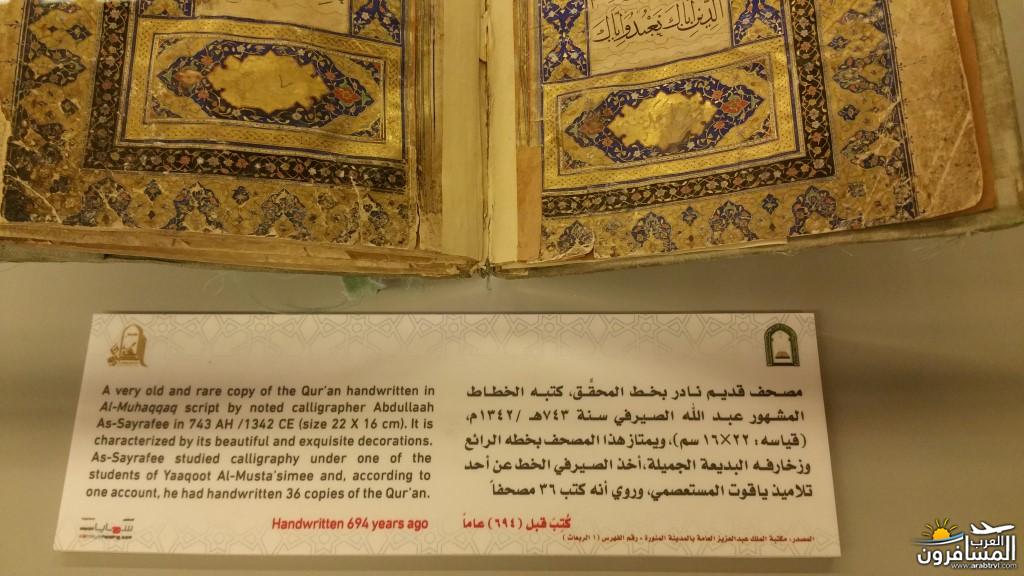 الذين إياك نعبد وإياك
A very old and rare copy of the Qur'an handwritten in
Al-Muhaqqaq script by noted calligrapher Abdullaah
As-Sayrafee in 743 AH /1342 CE (size 22 X 16 cm). It is
characterized by its beautiful and exquisite decorations.
As-Sayrafee studied calligraphy under one of the
students of Yaaqoot Al-Musta'simee and, according to
one account, he had handwritten 36 copies of the Qur'an.
Handwritten 694 years ago
مصحف قديم نادر بخط المحقَّق، كتبه الخطاط
المشهور عبد الله الصيرفي سنة ٧٤٣هـ /١٣٤٢م،
(قياسه: ٢٢×١٦ سم)، ويمتاز هذا المصحف بخطه الرائع
وزخارفه البديعة الجميلة، أخذ الصيرفي الخط عن أحد
تلاميذ ياقوت المستعصمي، وروي أنه كتب ٣٦ مصحفاً
كُتبَ قبل (٦٩٤) عاماً
المصدر: مكتبة الملك عبدالعزيز العامة بالمدينة المنورة - رقم الفهرس (١ الربعات)
سمايا
العرب
المسافرون
www.arabtrvl.com